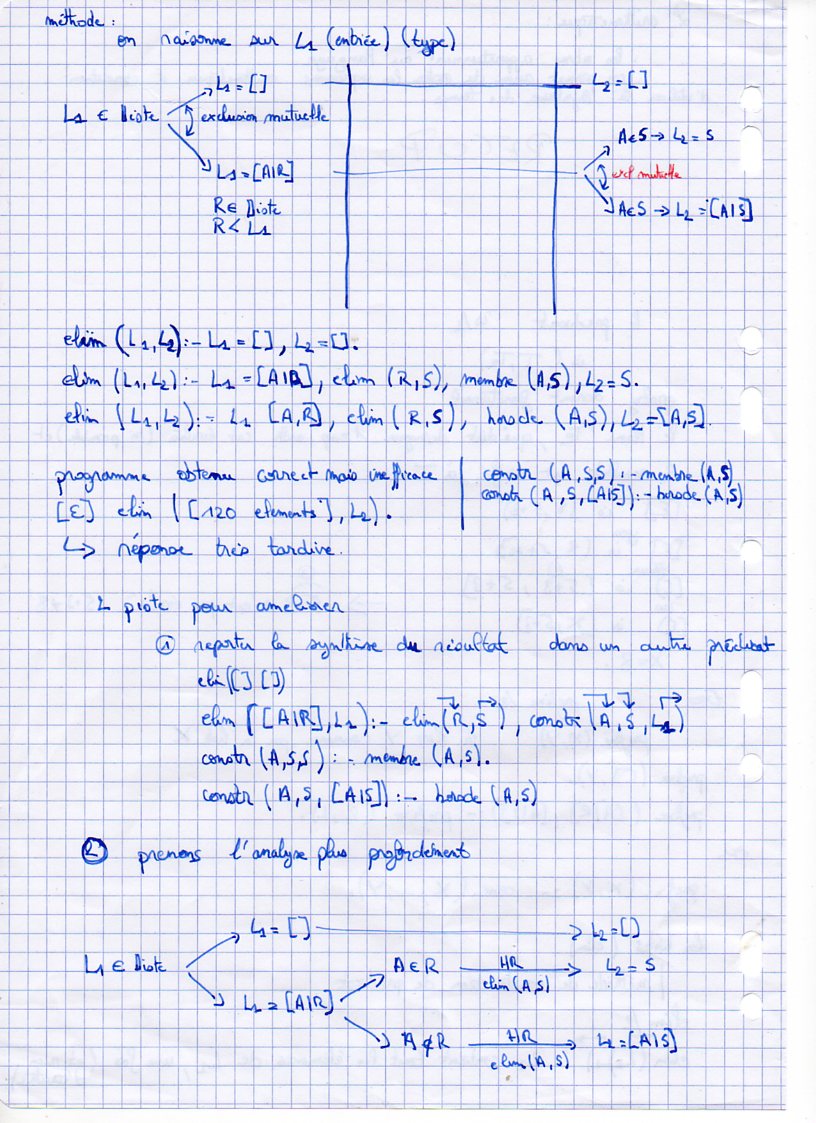 méthode :
on raisonne sur L1 (entrée) (type)
L1 = [] L2 = []
L1 ∈ Liste exclusion mutuelle
A∈S → L2 = S
L1 = [A|R] excl mutuelle
R ∈ Liste A∈S → L2 = [A|S]
R < L1
elim (L1, L2) :- L1 = [], L2 = [].
elim (L1, L2) :- L1 = [A|R], elim (R, S), membre (A,S), L2 = S.
elim (L1, L2) :- L1 [A,R], elim (R, S), horsde (A,S), L2 = [A,S].
programme obtenu correct mais inefficace
[E] elim ([120 elements], L2).
↳ réponse très tardive.
constr (A, S,S) :- membre (A,S)
constr (A, S, [A|S]) :- horsde (A,S)
2 piste pour ameliorer
① reporter la synthèse du résultat dans un autre prédicat
elim([] [])
elim ([A|R], L1) :- elim (R, S), constr (A, S, L1)
constr (A, S,S) :- membre (A, S).
constr (A, S, [A|S]) :- horsde (A,S)
② prenons l'analyse plus profordement
L1 = [] L2 = []
L1 ∈ Liste A ∈ R HR L2 = S
elim (A,S)
L1 = [A|R]
A ∉ R HR L2 = [A|S]
elim (A,S)